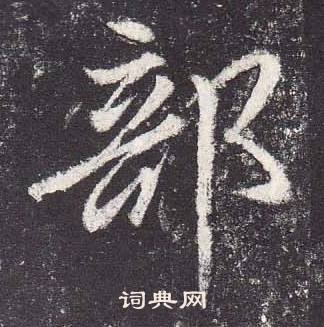 部
词典网